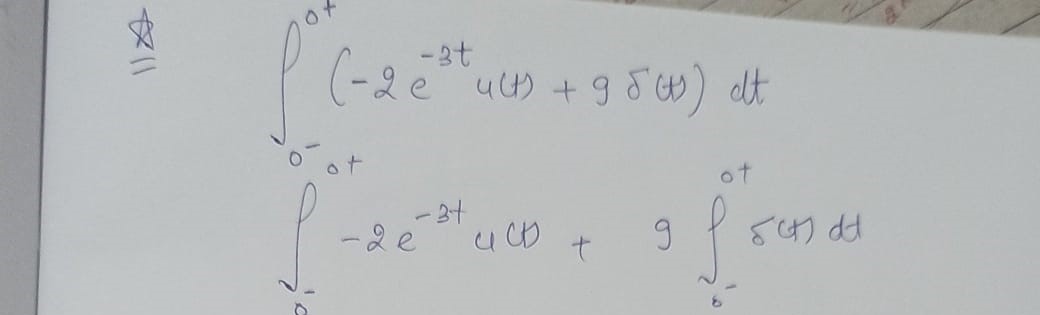 ☆ ∫_{0^-}^{0^+} (-2e^{-3t} u(t) + 9 δ(t)) dt
∫_{0^-}^{0^+} -2e^{-3t} u(t) + 9 ∫_{0^-}^{0^+} δ(t) dt